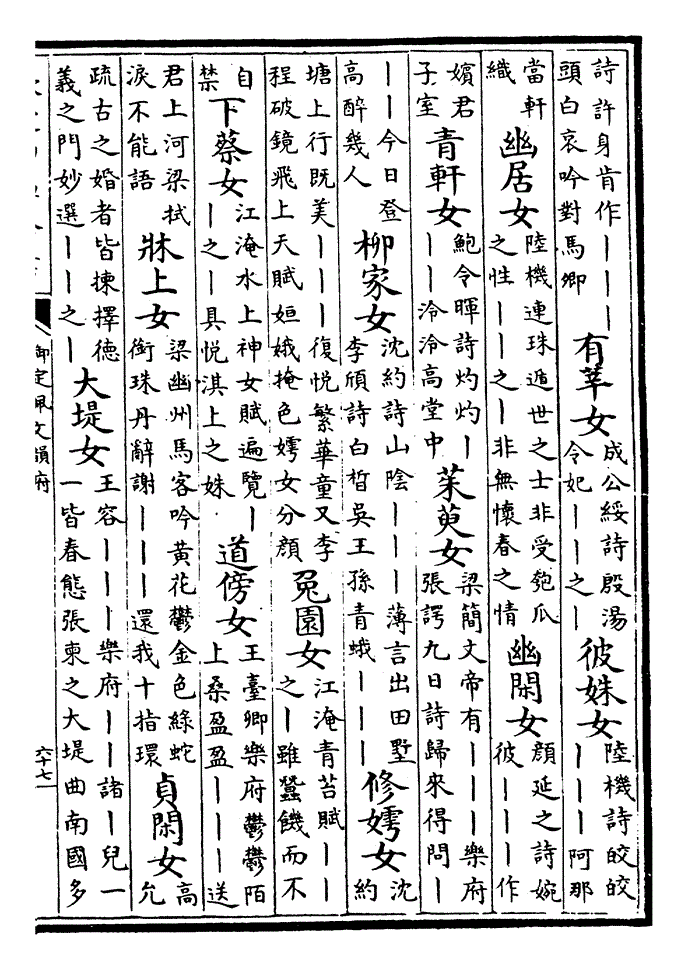 詩許身肯作｜｜｜
頭白哀吟對馬卿
有莘女
成公綏詩殷湯
令妃｜｜之｜
彼姝女
陸機詩皎皎
｜｜｜阿那
當軒
織
幽居女
陸機連珠遁世之士非受匏瓜
之性｜｜之｜非無懷春之情
幽閑女
顏延之詩婉
彼｜｜｜作
嬪君
子室
青軒女
鮑令暉詩灼灼｜
｜｜泠泠高堂中
茱萸女
梁簡文帝有｜｜｜樂府
張諤九日詩歸來得問｜
｜｜今日登
高醉幾人
柳家女
沈約詩山陰｜｜｜薄言出田墅
李頎詩白晳吳王孫青蛾｜｜｜
修嫮女
沈
約
塘上行既美｜｜｜復悅繁華童又李
程破鏡飛上天賦姮娥掩色嫮女分顏
兔園女
江淹青苔賦｜｜
之｜雖蠶饑而不
自
禁
下蔡女
江淹水上神女賦遍覽｜
｜之｜具悅淇上之姝
道傍女
王臺卿樂府鬱鬱陌
上桑盈盈｜｜｜送
君上河梁拭
淚不能語
牀上女
梁幽州馬客吟黃花鬱金色綠蛇
銜珠丹辭謝｜｜｜還我十指環
貞閑女
高
允
疏古之婚者皆揀擇德
義之門妙選｜｜之｜
大堤女
王容｜｜｜樂府｜｜諸｜兒一
一皆春態張柬之大堤曲南國多
御定佩文韻府
六十七